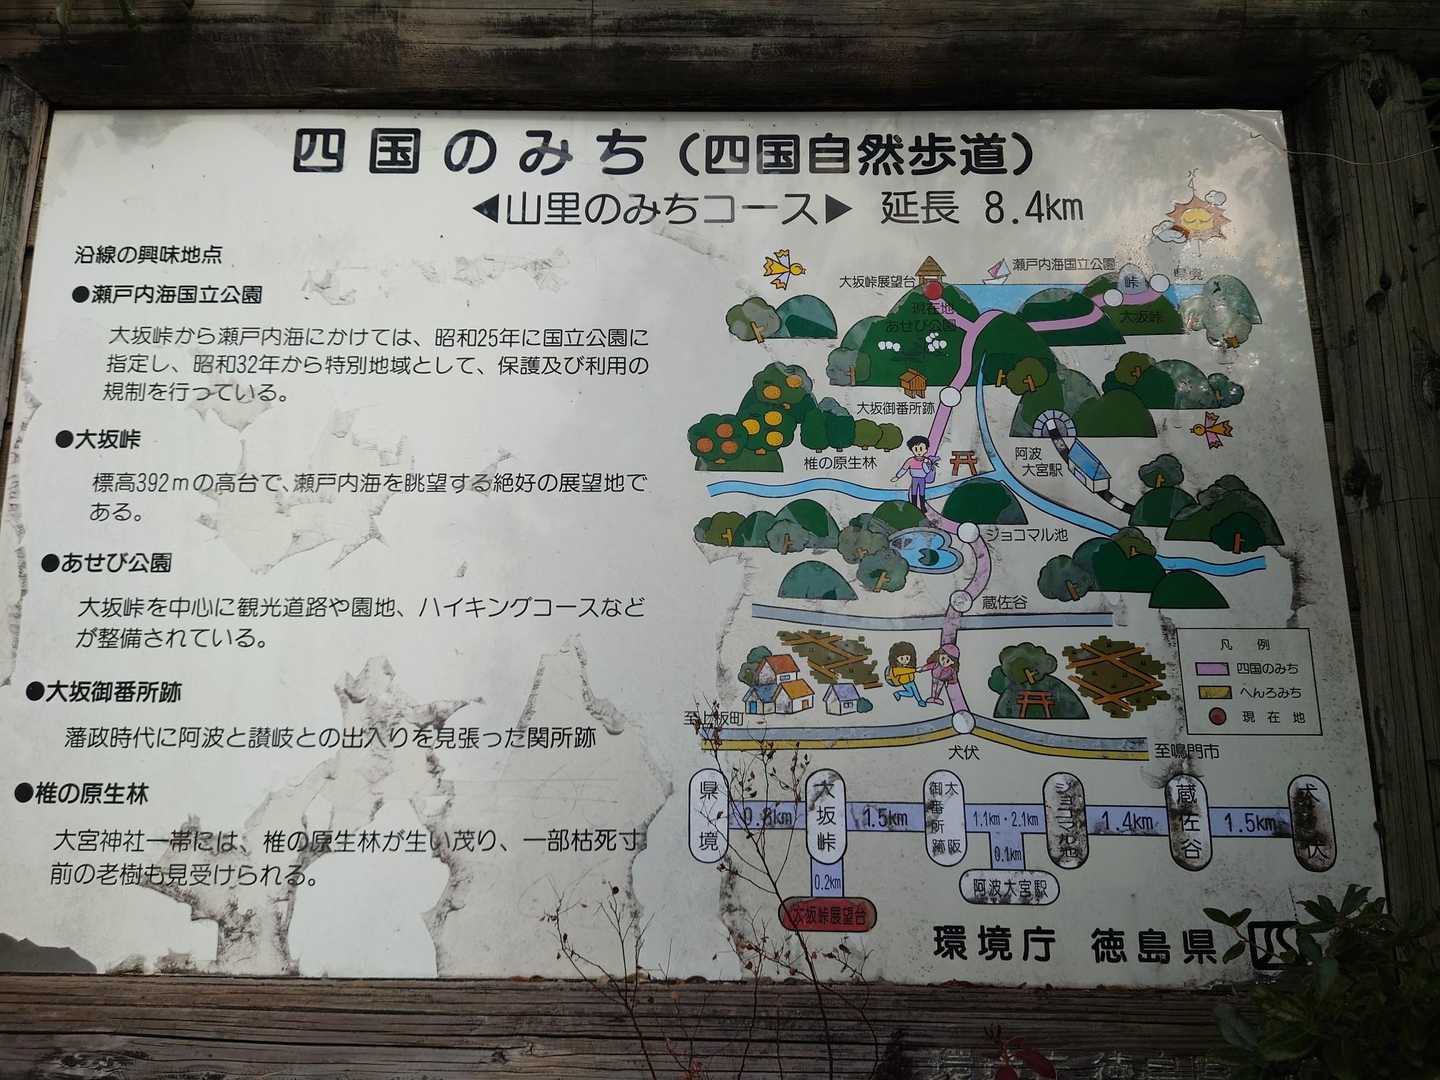 四国のみち（四国自然歩道）
◀山里のみちコース▶ 延長 8.4km
沿線の興味地点
●瀬戸内海国立公園
大坂峠から瀬戸内海にかけては、昭和25年に国立公園に
指定し、昭和32年から特別地域として、保護及び利用の
規制を行っている。
●大坂峠
標高392mの高台で、瀬戸内海を眺望する絶好の展望地で
ある。
●あせび公園
大坂峠を中心に観光道路や園地、ハイキングコースなど
が整備されている。
●大坂御番所跡
藩政時代に阿波と讃岐との出入りを見張った関所跡
●椎の原生林
大宮神社一帯には、椎の原生林が生い茂り、一部枯死寸
前の老樹も見受けられる。
瀬戸内海国立公園
大坂峠展望台
峠
県境
現在地
大坂峠
あせび公園
大坂御番所跡
椎の原生林
阿波
大宮駅
ジョコマル池
蔵佐谷
凡例
四国のみち
へんろみち
現在地
至上板町
犬伏
至鳴門市
県境
0.8km
大坂峠
1.5km
大阪
御番所跡
1.1km・2.1km
ジョコマル池
1.4km
蔵佐谷
1.5km
犬伏
0.2km
0.1km
大坂峠展望台
阿波大宮駅
環境庁 徳島県